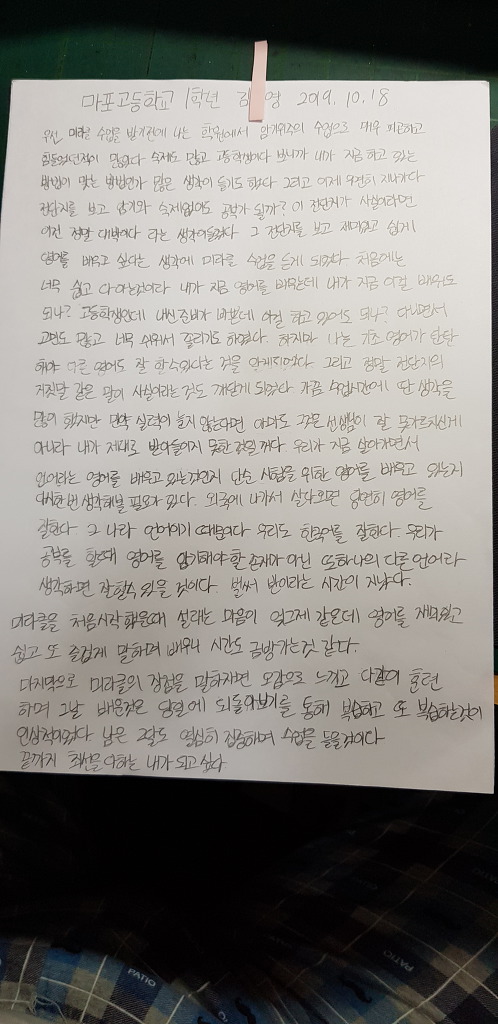 마포고등학교 1학년 김 영 2019. 10. 18
우선 미라클 수업을 받기전에 나는 학원에서 암기위주의 수업으로 매우 피곤하고
힘들었던적이 많았다 숙제도 많고 고등학생이다 보니까 내가 지금 하고 있는
방법이 맞는 방법인가 많은 생각이 들기도 했다 그리고 이제 우연히 지나가다
전단지를 보고 암기와 숙제없이도 공부가 될까? 이 전단지가 사실이라면
이건 정말 대박이다 라는 생각이들었다 그 전단지를 보고 재미있고 쉽게
영어를 배우고 싶다는 생각에 미라클 수업을 듣게 되었다 처음에는
너무 쉽고 다 아는것이라 내가 지금 영어를 배우는데 내가 지금 이걸 배워도
되나? 고등학생인데 내신준비가 바쁜데 이걸 하고 있어도 되나? 다니면서
고민도 많고 너무 쉬워서 질리기도 하였다. 하지만 나는 기초 영어가 탄탄
해야 다른 영어도 잘 할수있다는 것을 알게되었다. 그리고 정말 전단지의
거짓말 같은 말이 사실이라는것도 깨닫게 되었다 가끔 수업시간에 딴 생각을
많이 했지만 만약 실력이 늘지 않는다면 아마도 그것은 선생님이 잘 못가르치신게
아니라 내가 제대로 받아들이지 못한 것일꺼다. 우리가 지금 살아가면서
언어라는 영어를 배우고 있는것인지 단순 시험을 위한 영어를 배우고 있는지
다시한번 생각해볼 필요가 있다. 외국에 나가서 살다오면 당연히 영어를
잘한다 그 나라 언어이기 때문이다 우리도 한국어를 잘한다. 우리가
공부를 할때 영어를 암기해야 할 존재가 아닌 또하나의 다른 언어라
생각하면 잘할수 있을 것이다. 벌써 반이라는 시간이 지났다.
미라클을 처음시작 했을때 설레는 마음이 엊그제 같은데 영어를 재미있고
쉽고 또 즐겁게 말하며 배우니 시간도 금방가는것 같다.
마지막으로 미라클의 장점을 말하자면 오감으로 느끼고 다같이 훈련
하며 그날 배운것은 당일에 되돌아보기를 통해 복습하고 또 복습하는것이
인상적이었다 남은 2달도 열심히 집중하며 수업을 들을것이다
끝까지 최선을다하는 내가 되고싶다
PATIO
PATIO
PATIO